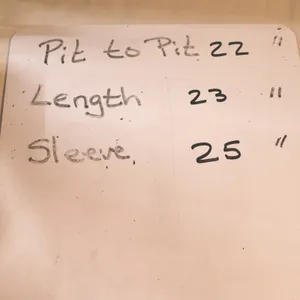 Pit to Pit 22 "
Length 23 "
Sleeve. 25 "